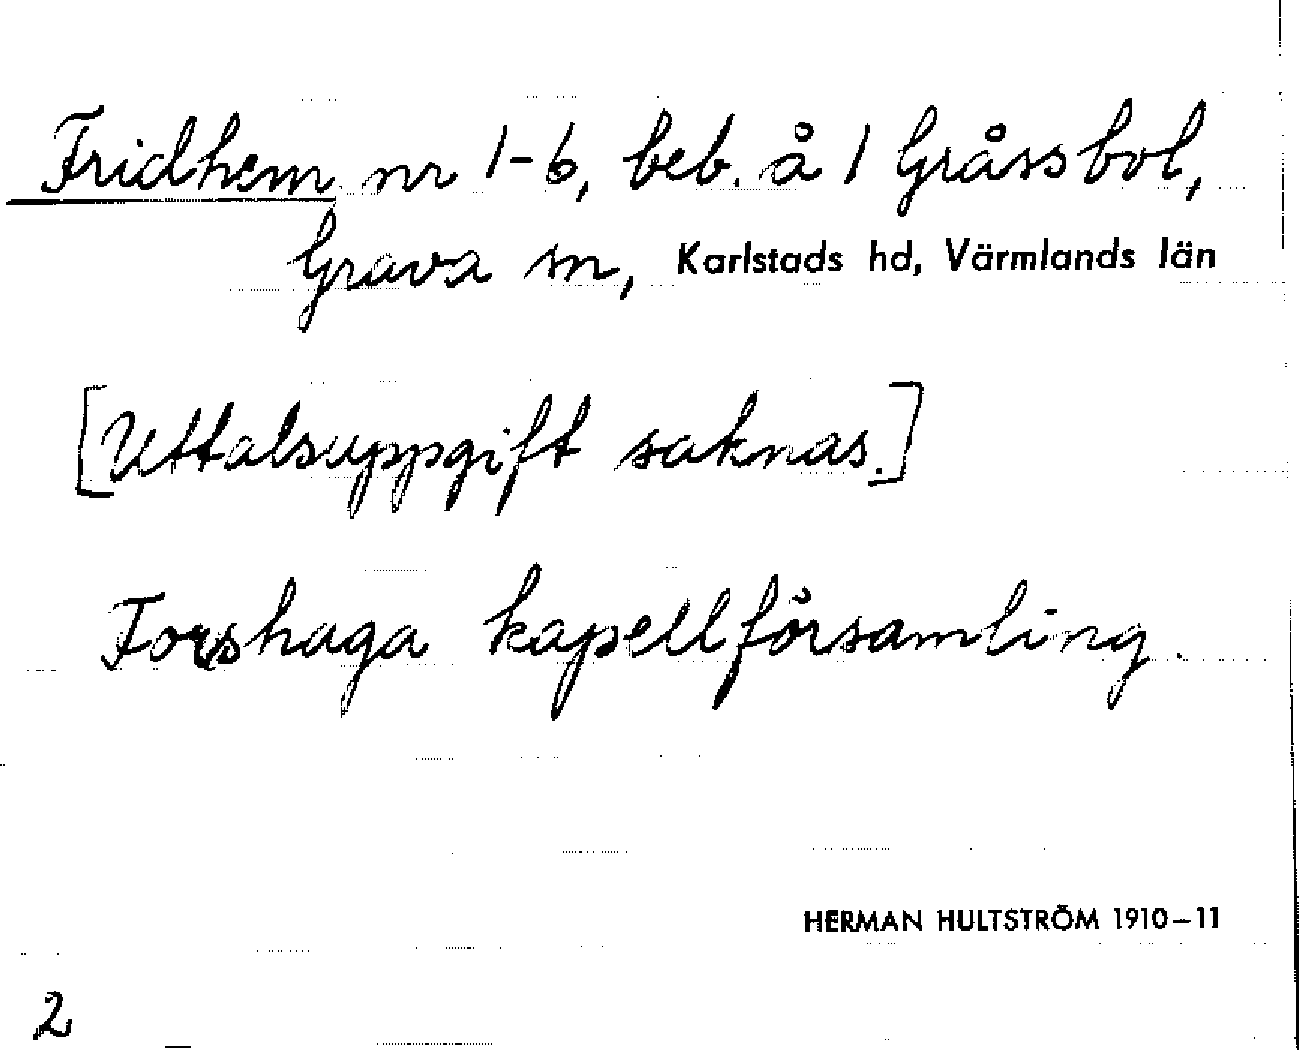 Fridhem nr 1-6, beb. å 1 Gråssbol,
Grava sn, Karlstads hd, Värmlands län
[Uttalsuppgift saknas.]
Forshaga kapellförsamling.
HERMAN HULTSTRÖM 1910–11
2